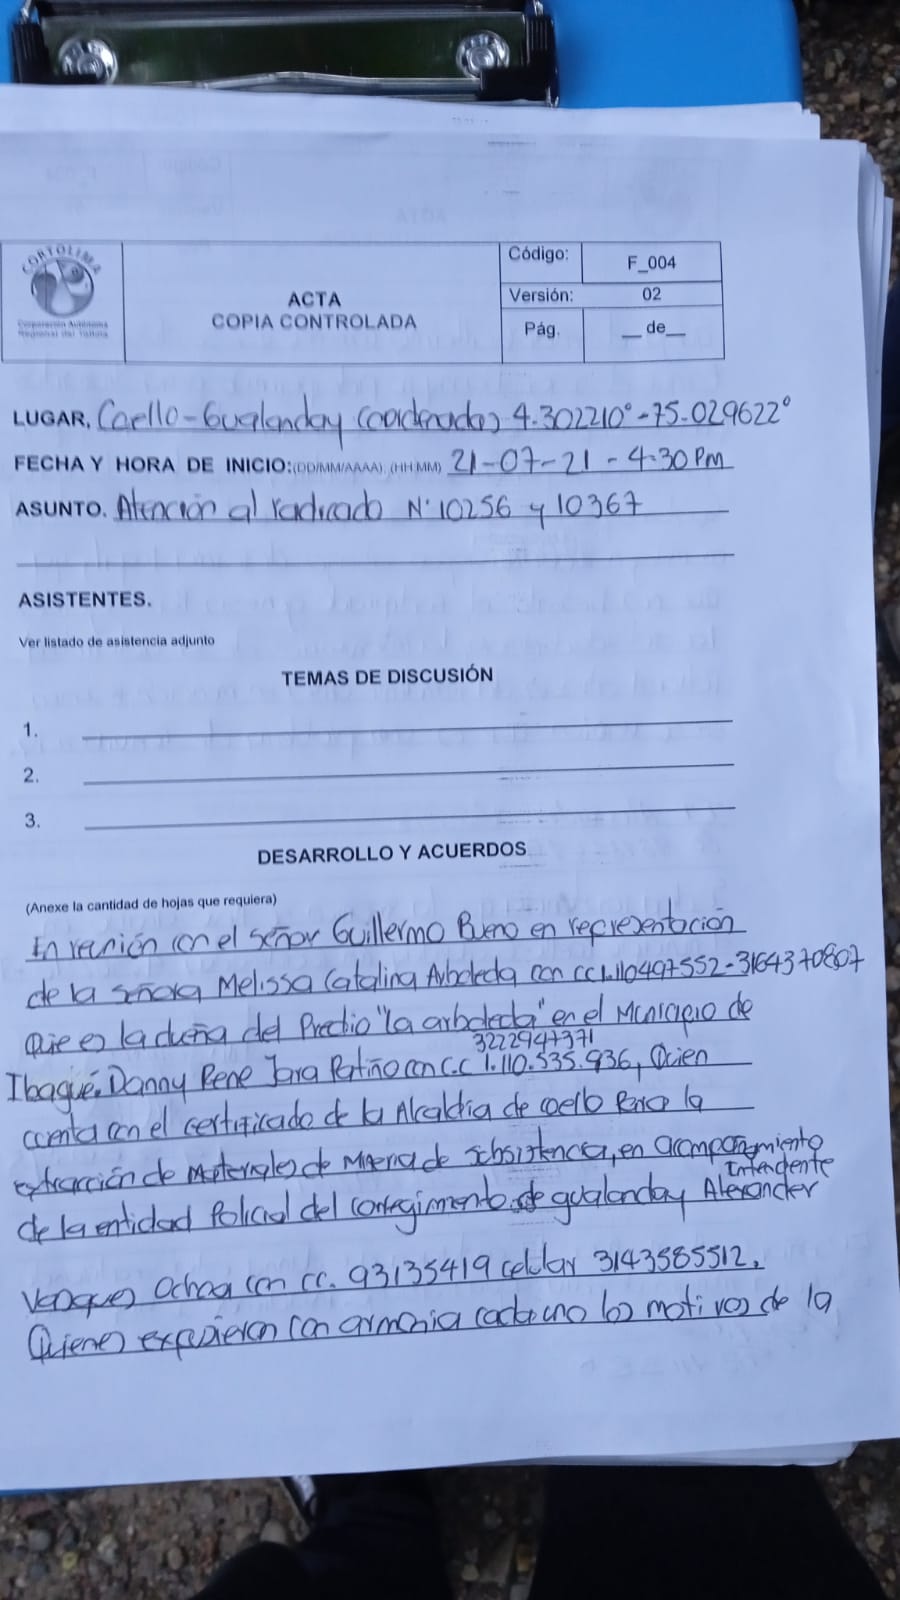 CORTOLIMA
Corporación Autónoma
Regional del Tolima
ACTA
COPIA CONTROLADA
Código: F_004
Versión: 02
Pág. __ de __
LUGAR. Coello-Gualanday Coordenadas 4.302210° -75.029622°
FECHA Y HORA DE INICIO:(DD/MM/AAAA), (HH:MM) 21-07-21 - 4:30 Pm
ASUNTO. Atención al radicado N° 10256 y 10367
ASISTENTES.
Ver listado de asistencia adjunto
TEMAS DE DISCUSIÓN
1.
2.
3.
DESARROLLO Y ACUERDOS
(Anexe la cantidad de hojas que requiera)
En reunión con el señor Guillermo Bueno en representación
de la señora Melissa Catalina Arboleda con cc 1.110497552-3164370807
Que es la dueña del Predio "la arboleda" en el Municipio de
3222947371
Ibagué. Danny Rene Jara Patiño con C.C 1.110.535.936, Quien
cuenta con el certificado de la Alcaldia de coello Para la
extracción de Materiales de Mineria de Subsistencia, en acompañamiento
Intendente
de la entidad Policial del corregimento de gualanday Alexander
Ochoa con cc. 93135419 celular 3143585512.
Quienes expusieron con armonia cada uno los motivos de la